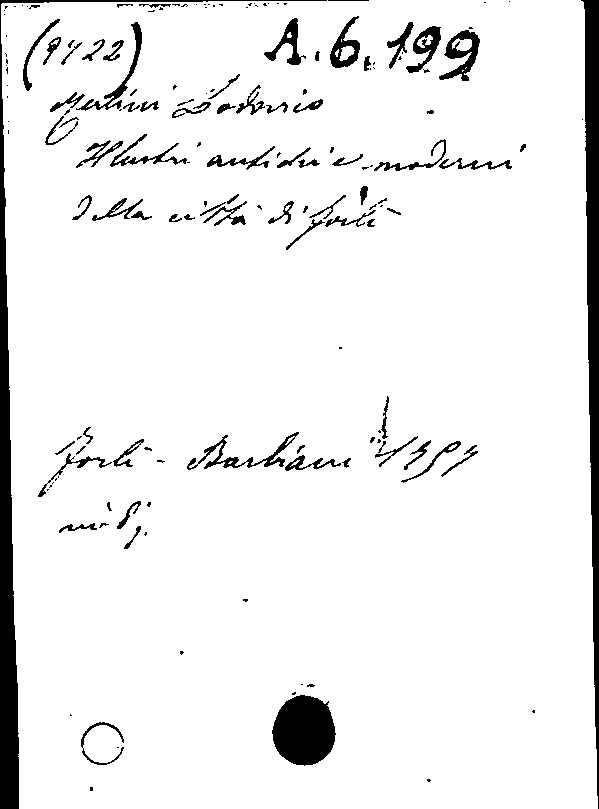 (9722) A.6.199
Merlini Lodovico
Illustri antichi e moderni
della città di Forlì
Forlì - Barbiani 1757
in 8°